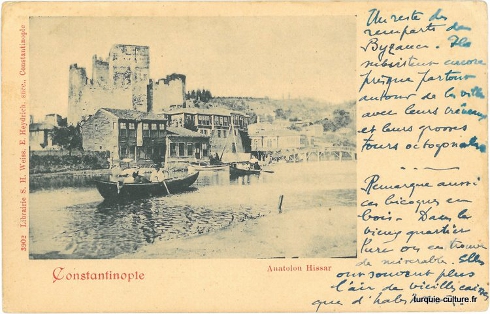 Un reste des
remparts de
Byzance. Ils
subsistent encore
presque partout
autour de la ville
avec leurs créneaux
et leurs grosses
tours octogonales
Remarque aussi
ces bicoques en
bois. Dans le
vieux quartier
turc on en trouve
de misérable. Elles
ont souvent plus
l'air de vieilles caisses
que d'habitations
3902 Librairie S. H. Weiss, E. Heydrich, succ., Constantinople
Constantinople
Anatolon Hissar
turquie-culture.fr